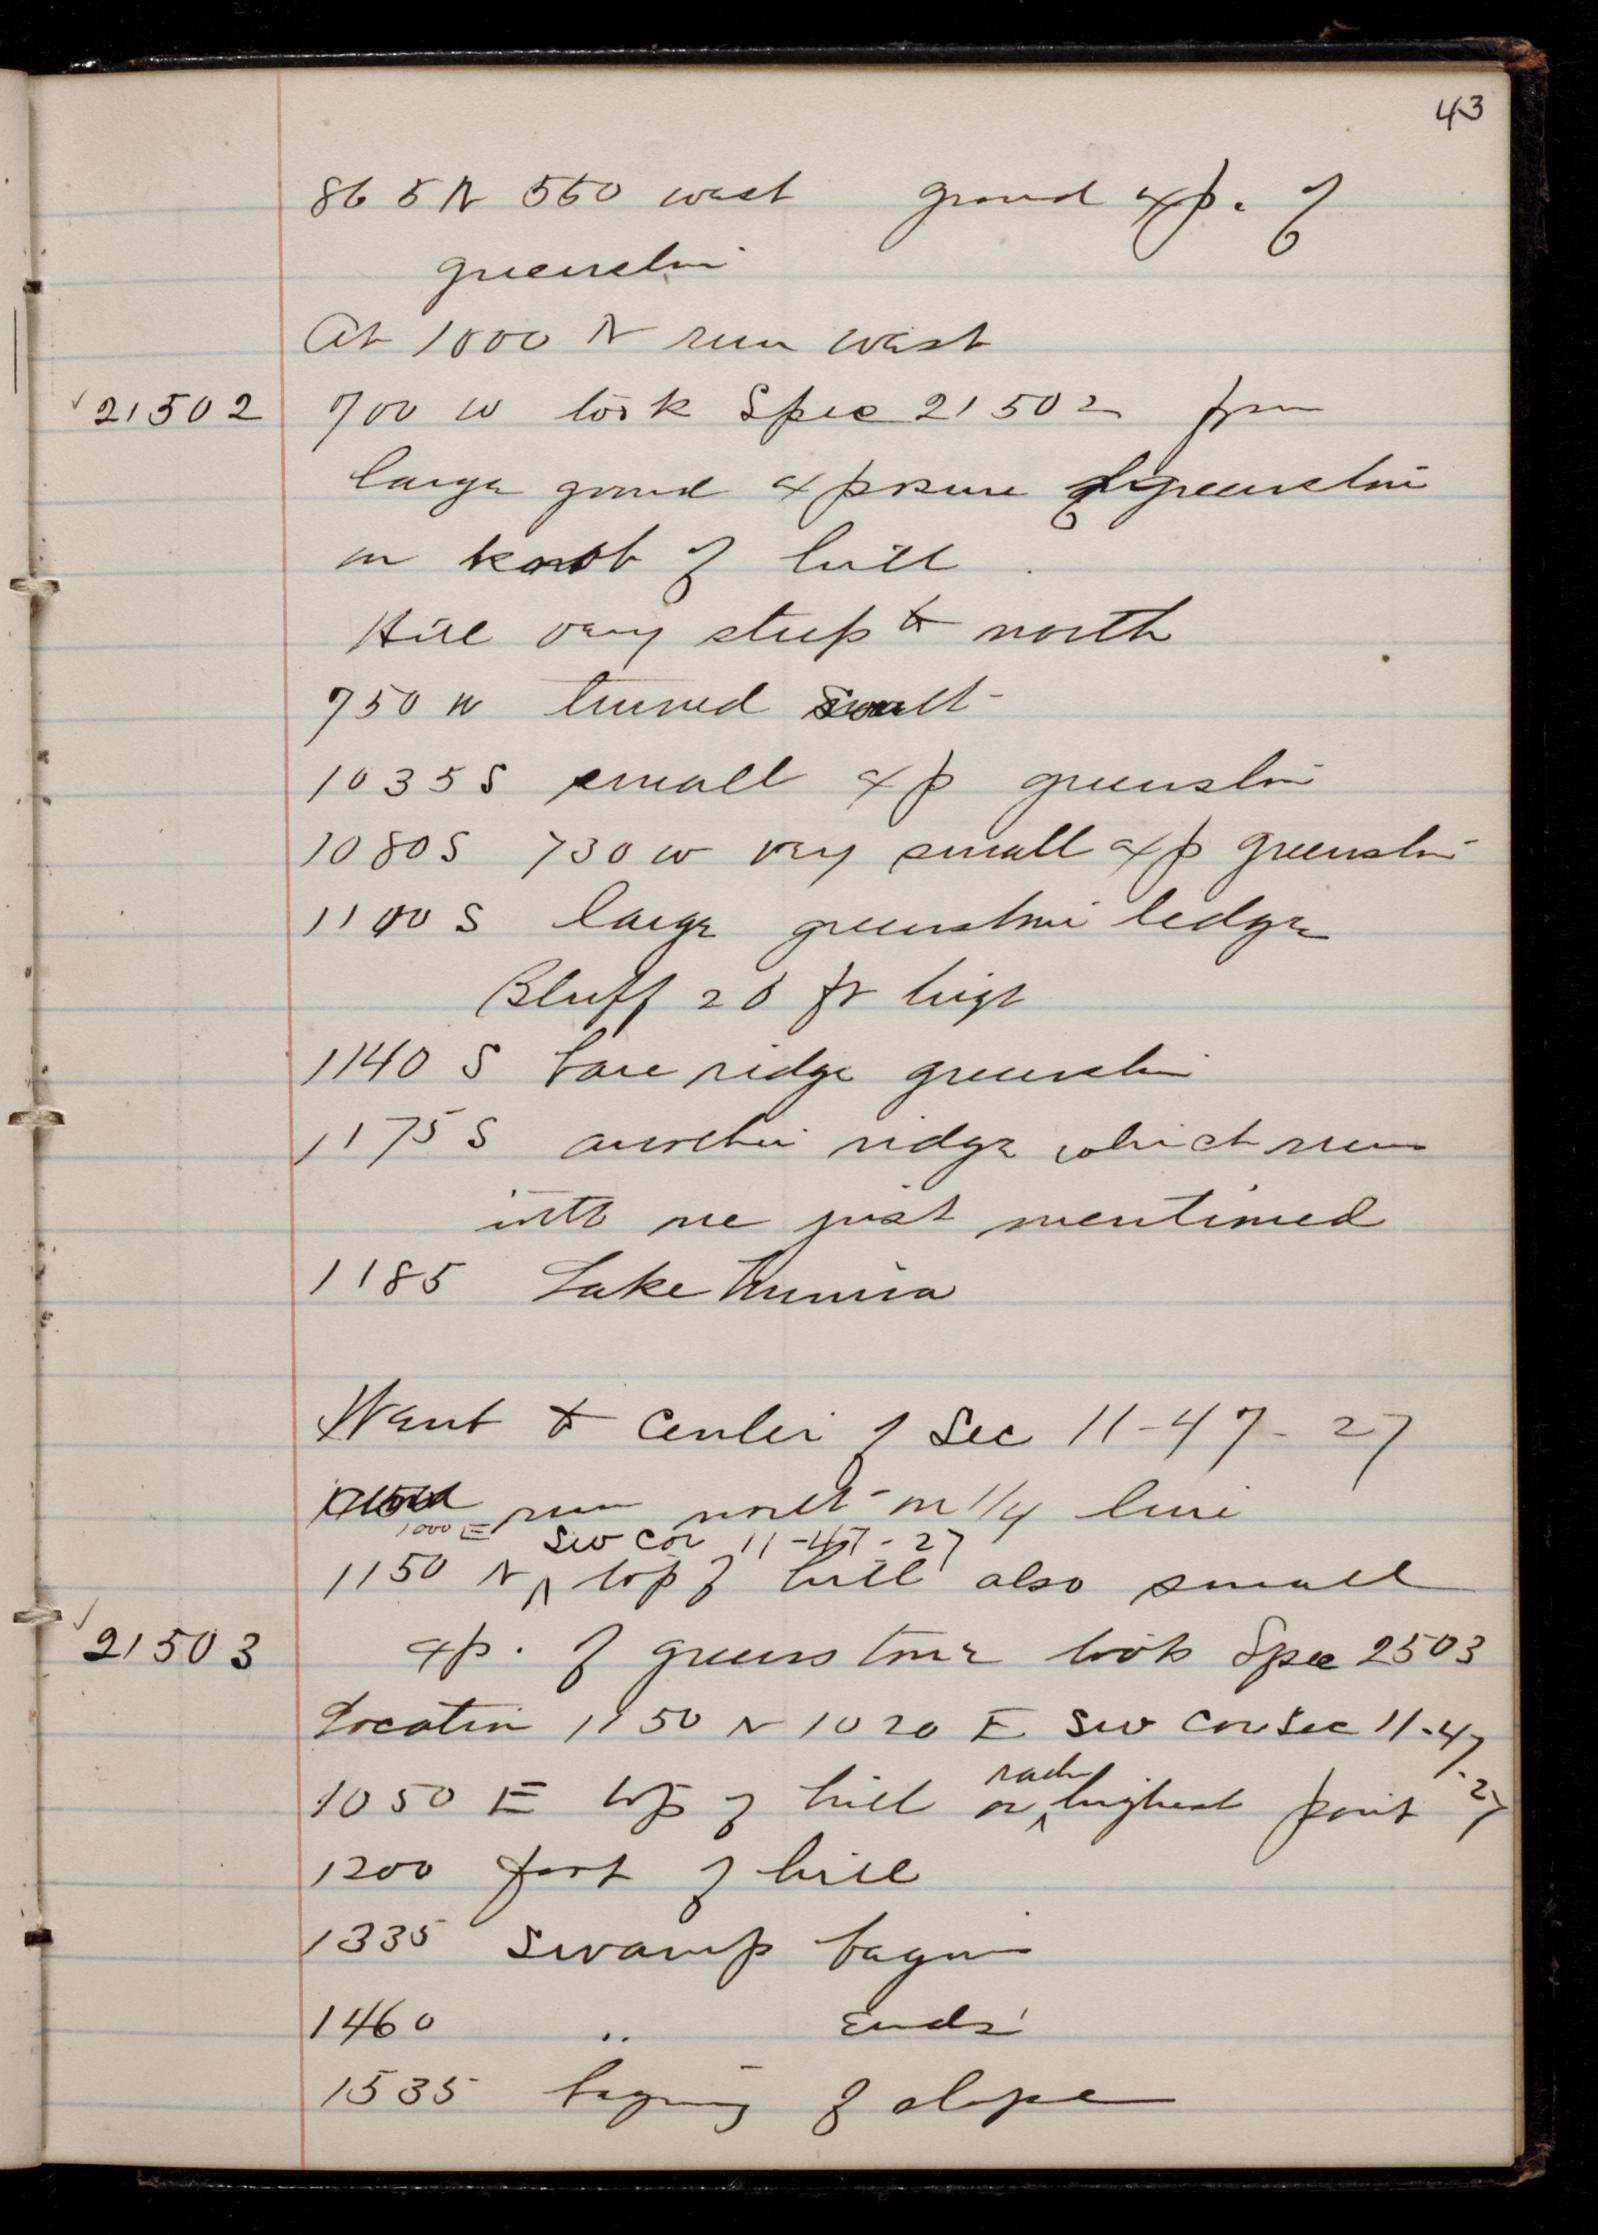 43
865 N 550 west ground exp. of
greenstone
At 1000 N run west
21502 700 W took Spec 21502 from
large ground exposure of greenstone
on knob of hill.
Hill very steep to north
750 W turned south
1035 S small exp greenstone
1080 S 730 W very small exp greenstone
1100 S large greenstone ledge
Bluff 20 ft high
1140 S bare ridge greenstone
1175 S another ridge which runs
into one just mentioned
1185 Lake
Went to center of Sec 11-47-27
run north on 1/4 line
1000 E SW cor 11-47-27
1150 N ^ top of hill also small
21503 exp. of greenstone took Spec 2503
Location 1150 N 1020 E SW Cor Sec 11-47-27
1050 E top of hill or ^ highest point
1200 foot of hill
1335 Swamp begins
1460 " Ends
1535 begining of slope